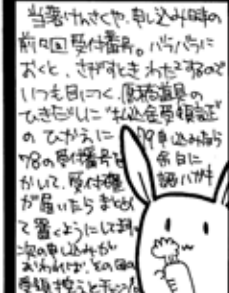 当落けんさくや、申し込み時の
前回受付番号。バラバラに
おくと、さがすとき わたわたするので
いつも目につく、原稿道具の
ひきだしに"払込金受領証"
の ひかえに
79申し込みなら
78の受付番号を
余白に
かいて、受付確
調ハガキ
が届いたら まとめ
て置くようにして
次の申し込みが
おわれば、その回の
受領控えとチェンジ